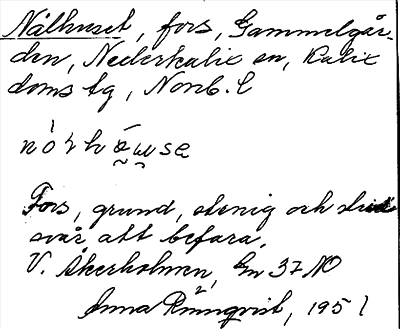 Nålhuset, fors, Gammelgår-
den, Nederkalix sn, Kalix
doms lg, Norrb. l
Fors, grund, stenig och
svår att befara.
V. Åkerholmen, Gn 37 NO
Anna Rönnqvist, 1951